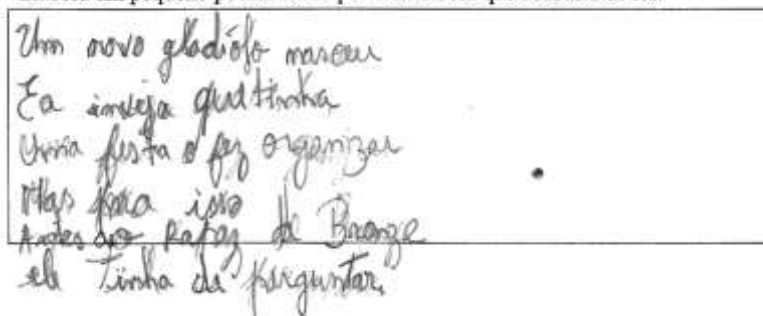 Um novo gladiolo nasceu
E a inveja que tinha
Uma festa o fez organizar
Mas para isso
Antes ao Rapaz de Bronze
ele Tinha de perguntar.